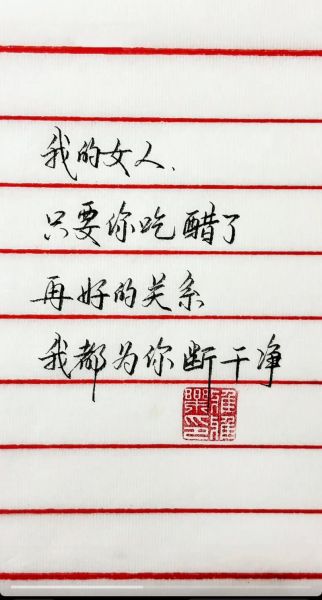 我的女人、
只要你吃醋了
再好的关系
我都为你断干净